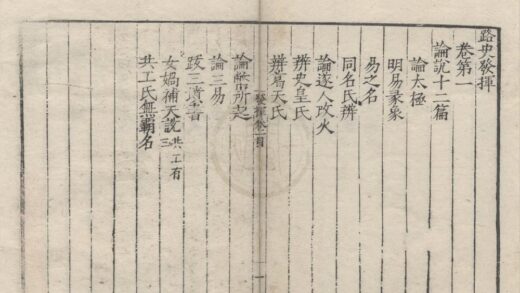 路史發揮
卷第一
論說十二篇
論太極
明易彖象
易之名
同名氏辨
論遂人改火
辨史皇氏
辨葛天氏
發揮卷一目
一
論幣所起
論三易
跋三墳書
女媧補天說共工有三
共工氏無霸名